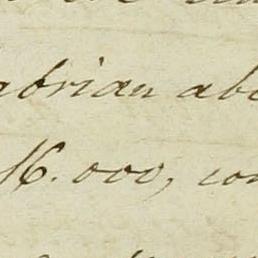 abrian abo
16.000, con